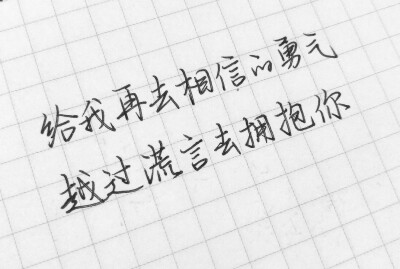 给我再去相信的勇气
越过谎言去拥抱你